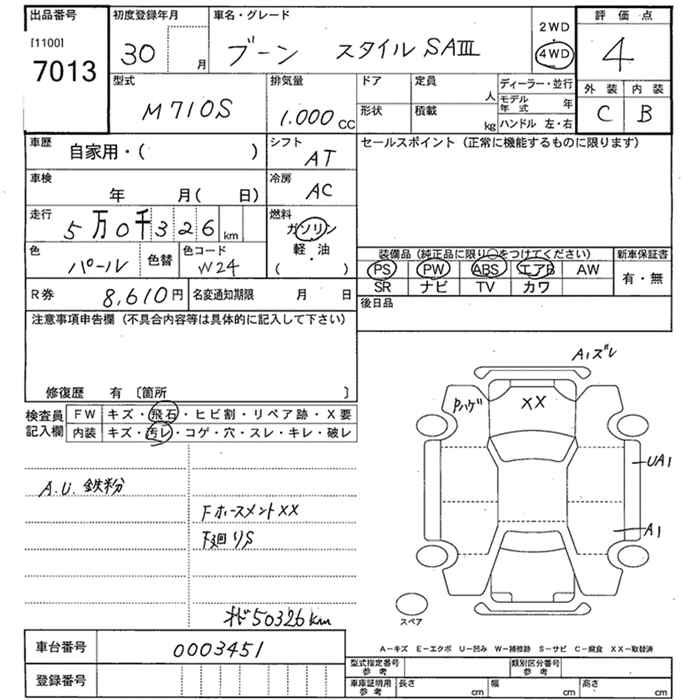 出品番号 初度登録年月 車名・グレード 評価点
[1100] 7013 30 月 ブーン スタイル SAⅢ 2WD 4WD 4
型式 排気量 ドア 定員 人 ディーラー・並行 外装 内装
M710S 1.000 CC 形状 積載 kg モデル年式 年 C B
ハンドル 左・右
車歴 自家用・( ) シフト AT セールスポイント (正常に機能するものに限ります)
車検 年 月( 日) 冷房 AC
走行 5万0千326 km 燃料 ガソリン 軽・油 ( )
色 パール 色替 色コード W24 装備品 (純正品に限り○をつけてください) 新車保証書
PS PW ABS エアB AW 有・無
SR ナビ TV カワ
R券 8,610円 名変通知期限 月 日 後日品
注意事項申告欄 (不具合内容等は具体的に記入して下さい)
修復歴 有 〔箇所 〕
検査員記入欄 FW キズ・飛石・ヒビ割・リペア跡・X要
内装 キズ・汚レ・コゲ・穴・スレ・キレ・破レ
A1ズレ
Pハゲ XX
UA1
A.U. 鉄粉
Fホースメント XX
下廻りS A1
50326km
スペア
A-キズ E-エクボ U-凹み W-補修跡 S-サビ C-腐食 XX-取替済
車台番号 0003451
型式指定番号 参考 類別区分番号 参考
登録番号 車庫証明用 参考 長さ cm 幅 cm 高さ cm